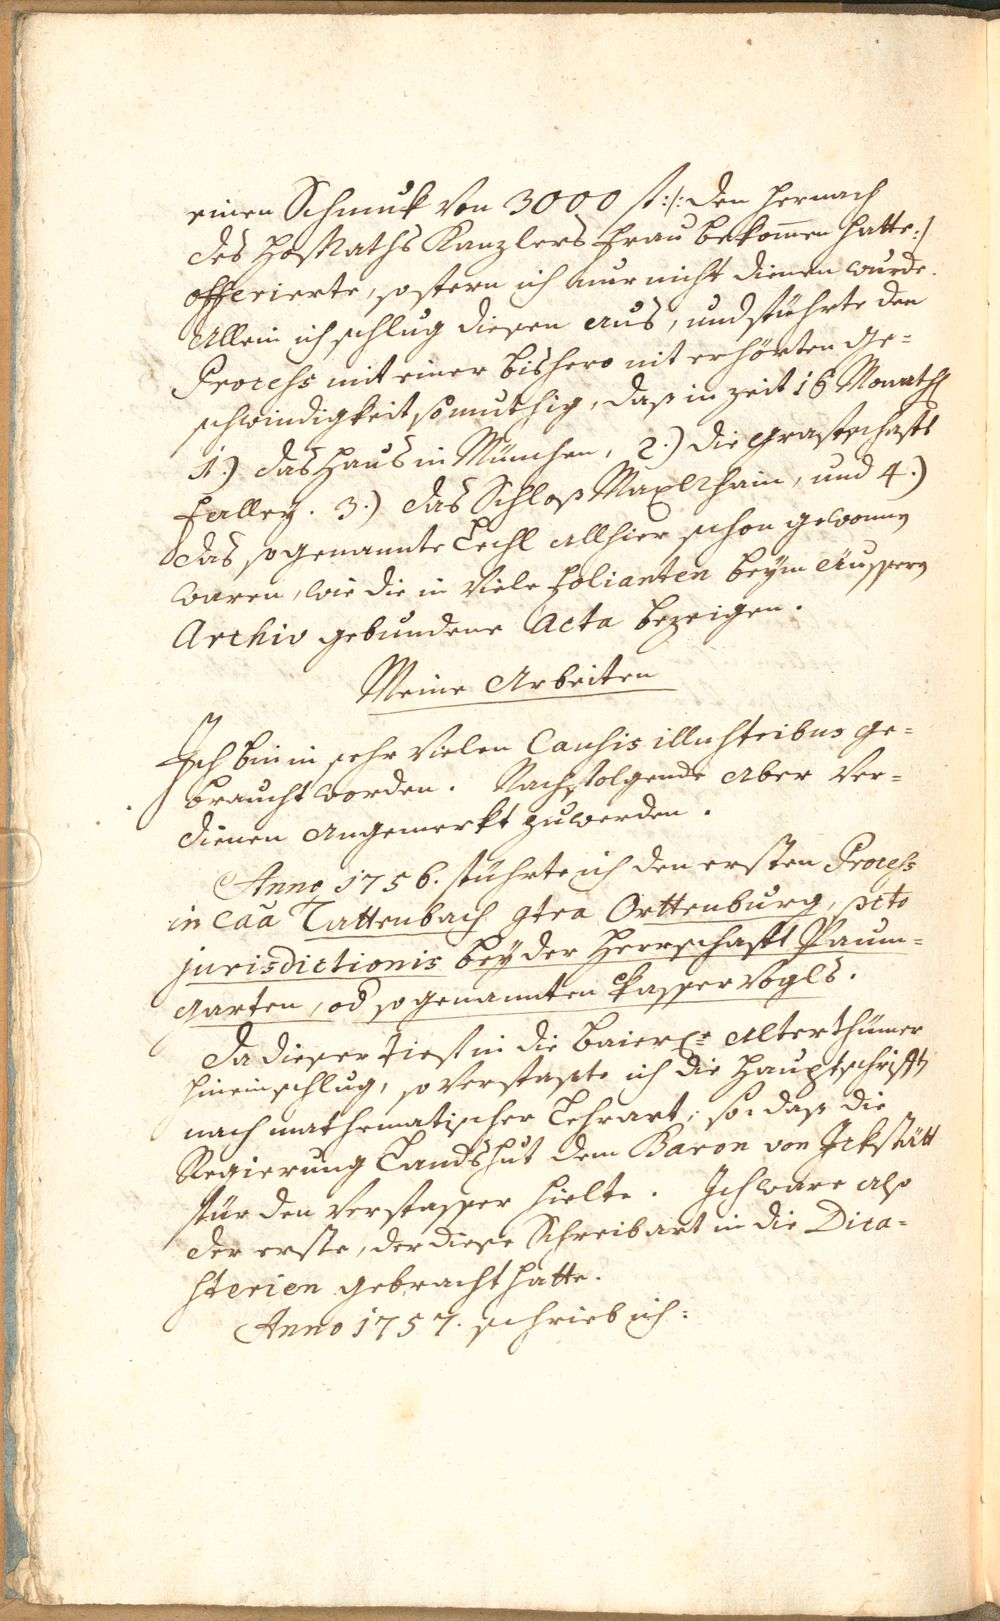 einen Schmuk von 3000 fl:/: den hernach
des HofRaths Kanzlers Frau bekom̅en hatte:/
offerierte, sofern ich nur nicht dienen wurde.
Allein ich schlug diesen aus, und führte den
Process mit einer bishero nit erhörten Ge=
schwindigkeit so muthig, daß in Zeit 16 Monath
1.) das Haus in München, 2.) die Grafschaft
Falley. 3.) das Schloß Maxlrhain, und 4.)
das sogenannte Lechl allhier schon gewonnen
waren, wie die in viele Folianten beym äussern
Archiv gebundene Acta bezeigen.
Meine Arbeiten
Ich bin in sehr vielen Causis illustribus ge=
braucht worden. Nachfolgende aber ver=
dienen angemerkt zu werden.
Anno 1756. führte ich den ersten Process
in Caa̅ Tattenbach gtra Orttenburg, pcto
jurisdictionis bey der Herrschafft Paum=
garten, od so genannten Kasservogls.
Da dieser tief in die Baier. Alterthümer
hineinschlug, so verfaßte ich die Hauptschrifft
nach mathematischer Lehrart; so daß die
Regierung Landshut dem Baron von Ickstätt
für den Verfasser hielte. Ich ware also
der erste, der diese Schreibart in die Dica=
sterien gebracht hatte.
Anno 1757. schrieb ich: